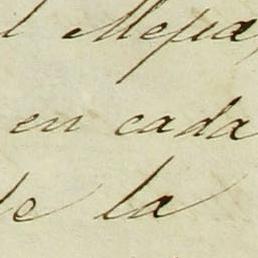 el Mepa
en cada
de la